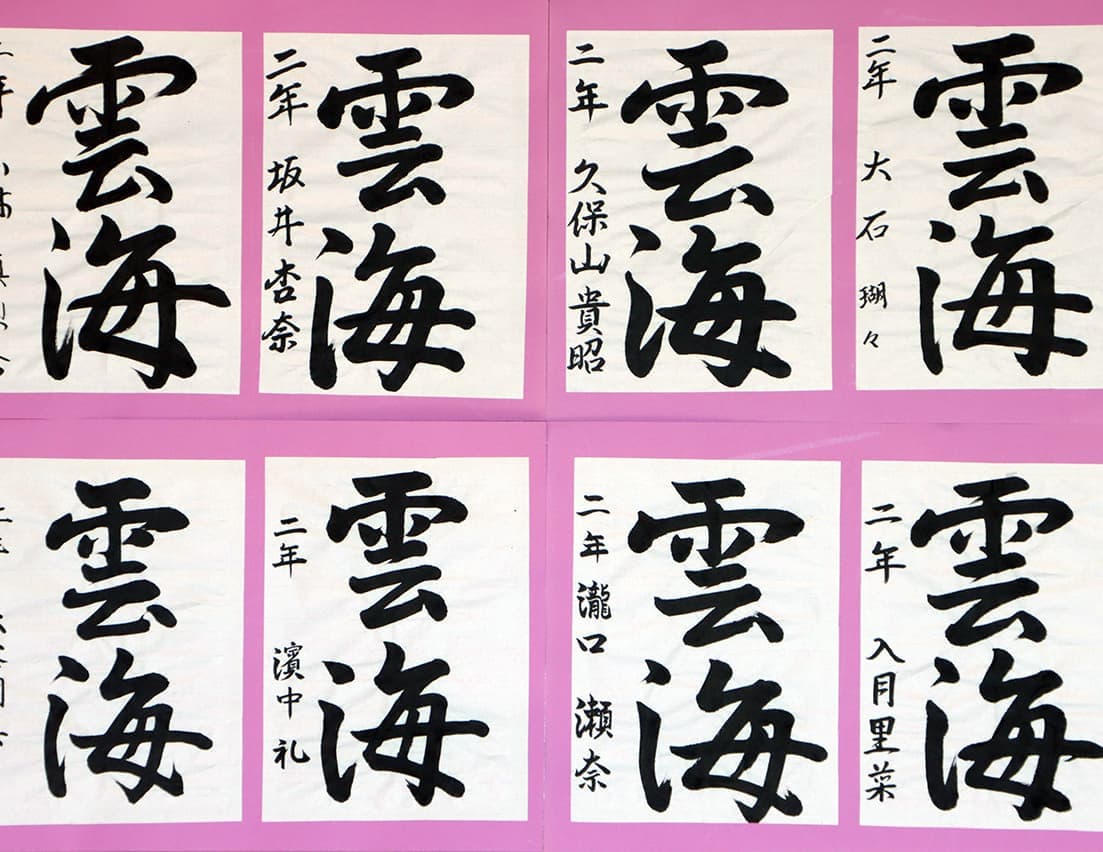 雲海
二年 大石 瑚々
雲海
二年 久保山 貴昭
雲海
二年 坂井 杏奈
雲海
雲海
二年 入月里菜
雲海
二年 瀧口 瀬奈
雲海
二年 濱中 礼
雲海